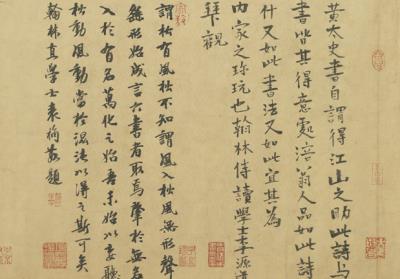 黃太史書自謂得江山之助此詩與
書皆其得意處涪翁人品如此詩
什又如此書法又如此宜其為
內家之珎玩也翰林侍讀學士李源道
拜觀
謂松有風松不知謂風入松風無形聲
無形始成言六書者取焉聲於無名
入於有名萬化之始吾未始以妄聽
松動風動當於混沌以得之斯可矣
翰林直學士袁桷敬題